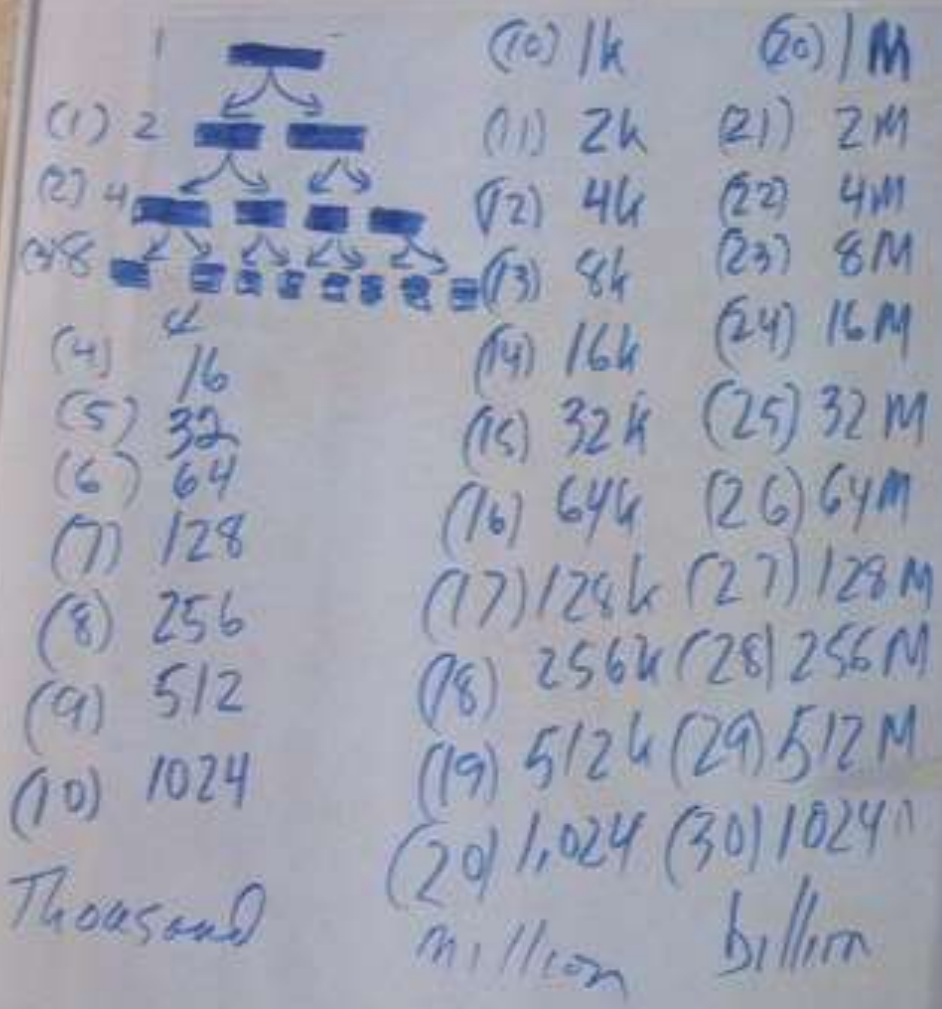 1
(1) 2
(2) 4
(3) 8
(4) 16
(5) 32
(6) 64
(7) 128
(8) 256
(9) 512
(10) 1024
Thousand
(10) 1k
(11) 2k
(12) 4k
(13) 8k
(14) 16k
(15) 32k
(16) 64k
(17) 128k
(18) 256k
(19) 512k
(20) 1,024
million
(20) 1M
(21) 2M
(22) 4M
(23) 8M
(24) 16M
(25) 32M
(26) 64M
(27) 128M
(28) 256M
(29) 512M
(30) 1024
billion